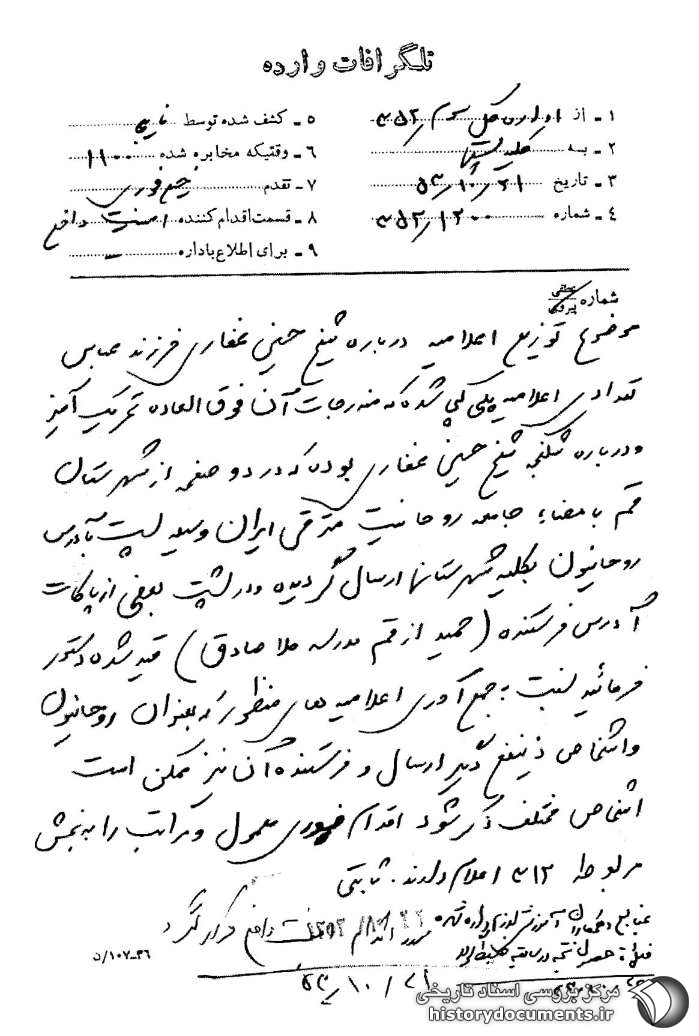 تلگرافات وارده
۱ـ از اداره کل سوم ۳۵۲
۲ـ به کلیه ساواکها
۳ـ تاریخ ۵۳/۱۰/۲۱
٤ـ شماره ۳۵۲/۱۲۰۰
۵ـ کشف شده توسط
۶ـ وقتیکه مخابره شده ۱۱۰۰
۷ـ تقدم خیلی فوری
۸ـ قسمت اقدام کننده امنیت داخلی
۹ـ برای اطلاع باداره ـ
شماره عطفی پیروی
موضوع توزیع اعلامیه درباره شیخ حسین غفاری فرزند عباس
تعدادی اعلامیه پلی کپی شده که مندرجات آن فوق العاده تحریک آمیز
و درباره شکنجه شیخ حسین غفاری بوده که در دو صفحه از شهرستان
قم بامضاء جامعه روحانیت مترقی ایران وسیله پست بآدرس
روحانیون بکلیه شهرستانها ارسال گردیده و در پشت بعضی از پاکات
آدرس فرستنده (حمید از قم مدرسه ملا صادق) قید شده دستور
فرمائید نسبت به جمع آوری اعلامیه های منظور که بعنوان روحانیون
و اشخاص ذینفع دیگر ارسال و فرستنده آن نیز ممکن است
اشخاص مختلف ذکر شود اقدام فوری معمول و مراتب را به بخش
مربوطه ۳۱۲ اعلام دارند. ثابتی
داخلی قرار گیرد
۳۶-۱۰۷/ن
۵۳/۱۰/۲۱
مرکز بررسی اسناد تاریخی
historydocuments.ir